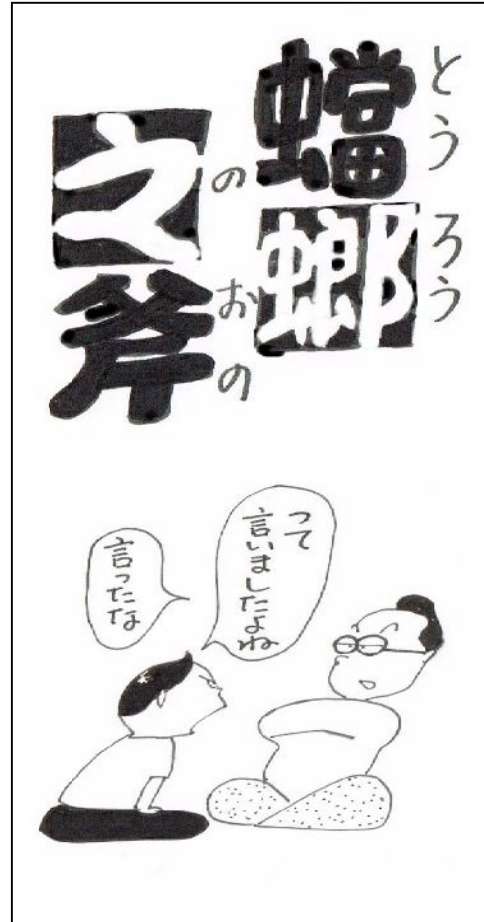 蟷螂
とうろう
之斧
のおの
って
言いましたよね
言ったな